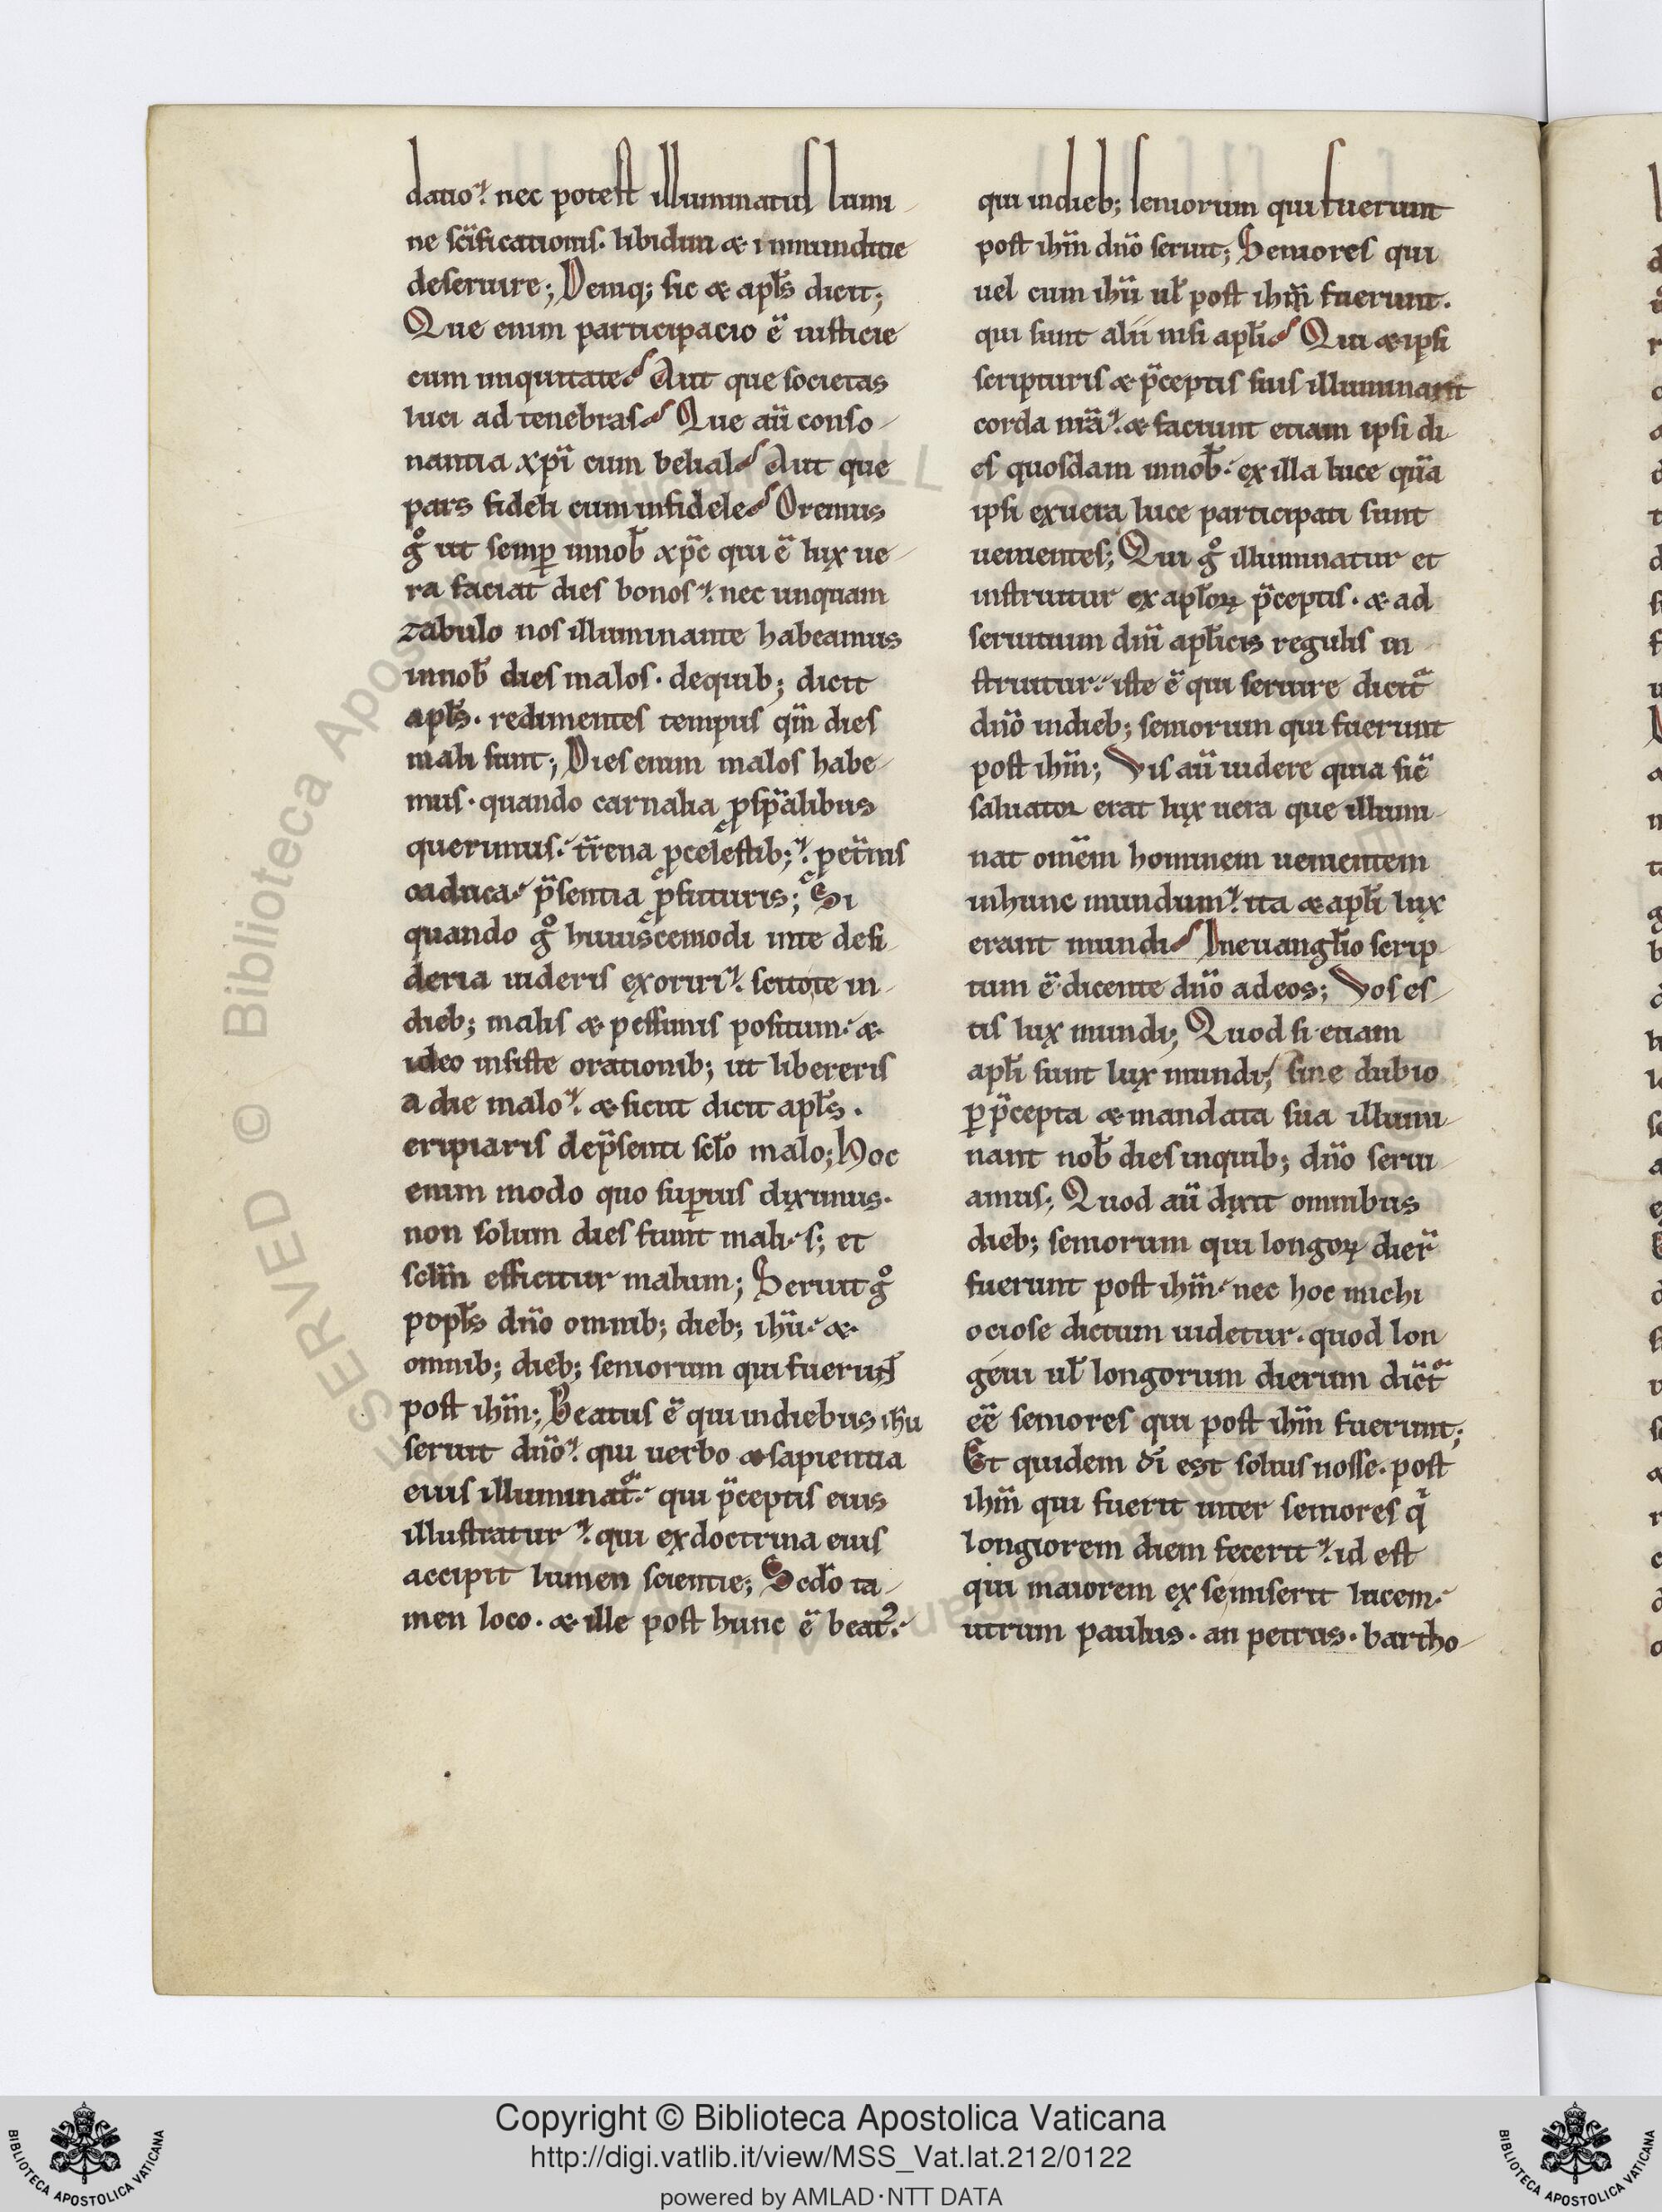 datio. nec potest illuminatus lumi
ne sc̄ificationis. libidini & inmunditie
deseruire; Deniq; sic & apl̄s dicit;
Que enim participacio ē iusticie
cum iniquitate? Aut que societas
luci ad tenebras? Que aū conso
nantia xp̄i cum belial? Aut que
pars fideli cum infidele? Oremus
gͦ ut semꝑ innob̄ xp̄c qui ē lux ue
ra faciat dies bonos. nec unquam
zabulo nos illuminante habeamus
innob̄ dies malos. dequib; dicit
apl̄s. redimentes tempus qm̄ dies
mali sunt; Dies enim malos habe
mus. quando carnalia ꝓ sp̄alibus
querimus. tr̄rena ꝓ celestib;. pet̄nis
caduca. p̄sentia ꝓ futuris; Si
quando gͦ huiuscemodi inte desi
deria uideris exoriri. scitote in
dieb; malis & pessimis positum. &
ideo insiste orationib; ut libereris
a die malo. & sicut dicit apl̄s.
eripiaris dep̄senti scl̄o malo; Hoc
enim modo quo suꝑius diximus.
non solum dies fiunt mali. s; et
sclm̄ efficitur malum; Seruit gͦ
popl̄s dn̄o omnib; dieb; ihū. &
omnib; dieb; seniorum qui fuerunt
post ihm̄; Beatus ē qui indiebus ihū
seruit dn̄o. qui uerbo & sapientia
eius illuminat᷑. qui p̄ceptis eius
illustratur. qui exdoctrina eius
accipit lumen scientie; Scd̄o ta
men loco. & ille post hunc ē beatꝰ.
qui indieb; seniorum qui fuerunt
post ihm̄ dn̄o seruit; Seniores qui
uel cum ihū ul̄ post ihm̄ fuerunt.
qui sunt alii nisi apl̄i? Qui & ipsi
scripturis & p̄ceptis suis illuminant
corda nr̄a. & faciunt etiam ipsi di
es quosdam innob̄. ex illa luce quā
ipsi exuera luce participati sunt
uenientes; Qui gͦ illuminatur et
instruitur ex apl̄oꝝ p̄ceptis. & ad
seruitium dn̄i apl̄icis regulis in
struitur. iste ē qui seruire dicit᷑
dn̄o indieb; seniorum qui fuerunt
post ihm̄; Vis aū uidere quia sic̄
saluator erat lux uera que illumi
nat omēm hominem uenientem
inhunc mundum. ita & apl̄i lux
erant mundi? Ineuangl̄io scrip
tum ē. dicente dn̄o adeos; Vos es
tis lux mundi; Quod si etiam
apl̄i sunt lux mundi; sine dubio
ꝑ p̄cepta & mandata sua illumi
nant nob̄ dies inquib; dn̄o serui
amus; Quod aū dixit omnibus
dieb; seniorum qui longoꝝ dier̄
fuerunt post ihm̄. nec hoc michi
ociose dictum uidetur. quod lon
geui ul̄ longorum dierum dict᷑
eē seniores qui post ihm̄ fuerunt;
Et quidem dī est solius nosse. post
ihm̄ qui fuerit inter seniores q̇
longiorem diem fecerit. id est
qui maiorem ex se miserit lucem.
utrum paulus. an petrus. bartho
Copyright © Biblioteca Apostolica Vaticana
http://digi.vatlib.it/view/MSS_Vat.lat.212/0122
powered by AMLAD·NTT DATA
BIBLIOTECA APOSTOLICA VATICANA
BIBLIOTECA APOSTOLICA VATICANA